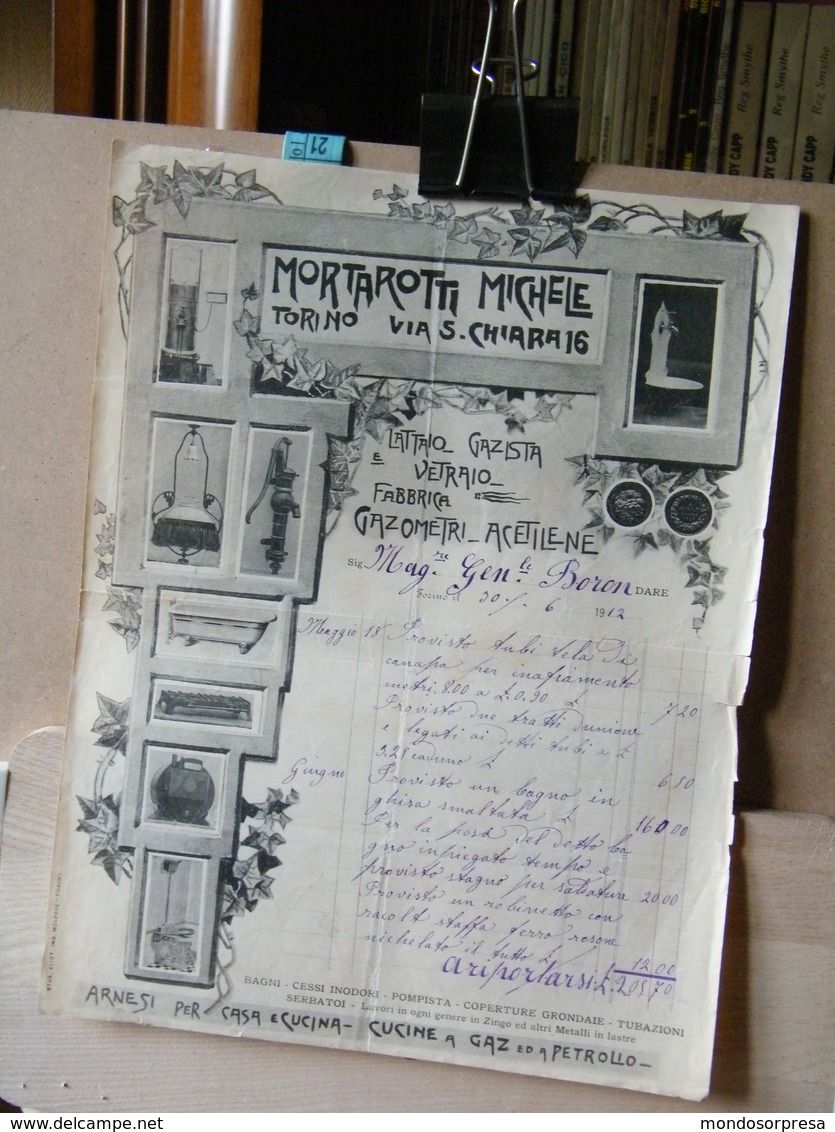 Reg Smythe
Reg Smythe
Reg Smythe
DY CAPP
DY CAPP
DY CAPP
21
MORTAROTTI MICHELE
TORINO VIA S. CHIARA 16
LATTAIO_ GAZISTA
E VETRAIO_
FABBRICA
GAZOMETRI_ ACETILENE
Sig. Mag.re Gen.le Boron DARE
Torino il 30/ 6 1912
Maggio 18 Provisto tubi tela Di
canapa per inafiamento
metri 8.00 a L 0.90 L 7 20
Provisto due tratti d'unione
e legati ai detti tubi a L
3,25 caduno L 6 50
Giugno Provisto un bagno in
ghisa smaltata L 160 00
Per la posa del detto ba
gno inpiegato tempo e
provisto stagno per saldature 20 00
Provisto un robinetto con
racolt staffa ferro rosone
nichelato il tutto L 12 00
a riportarsi L. 205 70
BAGNI - CESSI INODORI - POMPISTA - COPERTURE GRONDAIE - TUBAZIONI
SERBATOI - Lavori in ogni genere in Zingo ed altri Metalli in lastre
ARNESI PER CASA E CUCINA - CUCINE A GAZ ED A PETROLIO -
mondosorpresa